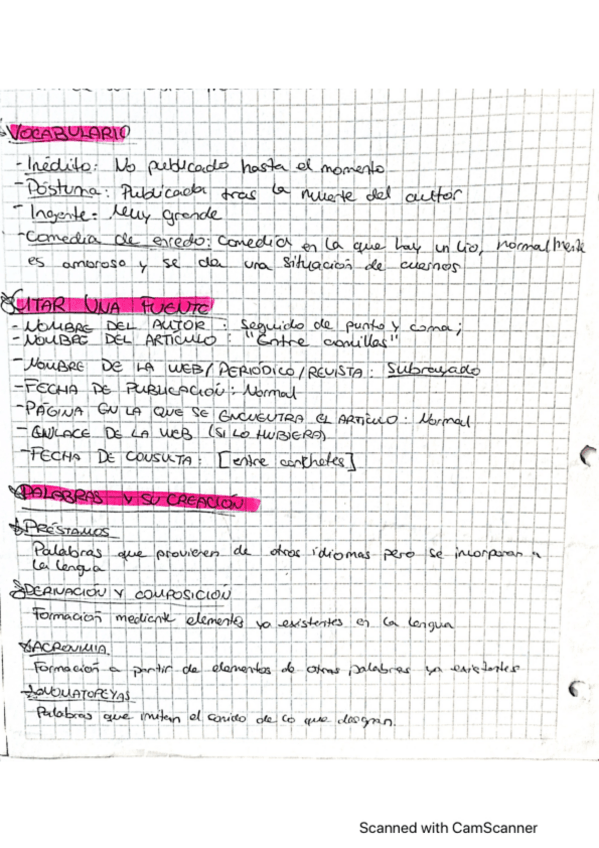 VOCABULARIO
- Inédito: No publicado hasta el momento
- Póstuma: Publicada tras la muerte del autor
- Ingente: Muy grande
- Comedia de enredo: comedia en la que hay un lío, normalmente
es amoroso y se da una situación de cuernos
CITAR UNA FUENTE
- NOMBRE DEL AUTOR : seguido de punto y coma;
- NOMBRE DEL ARTÍCULO : "Entre comillas"
- NOMBRE DE LA WEB/PERIÓDICO/REVISTA: Subrayado
- FECHA DE PUBLICACIÓN: Normal
- PÁGINA EN LA QUE SE ENCUENTRA EL ARTÍCULO: Normal
- ENLACE DE LA WEB (SI LO HUBIERA)
- FECHA DE CONSULTA: [entre corchetes]
PALABRAS Y SU CREACIÓN
PRÉSTAMOS
Palabras que provienen de otros idiomas pero se incorporan a
la lengua
DERIVACIÓN Y COMPOSICIÓN
Formación mediante elementos ya existentes en la lengua
ACRONIMIA
Formación a partir de elementos de otras palabras ya existentes
ONOMATOPEYAS
Palabras que imitan el sonido de lo que designan.
Scanned with CamScanner